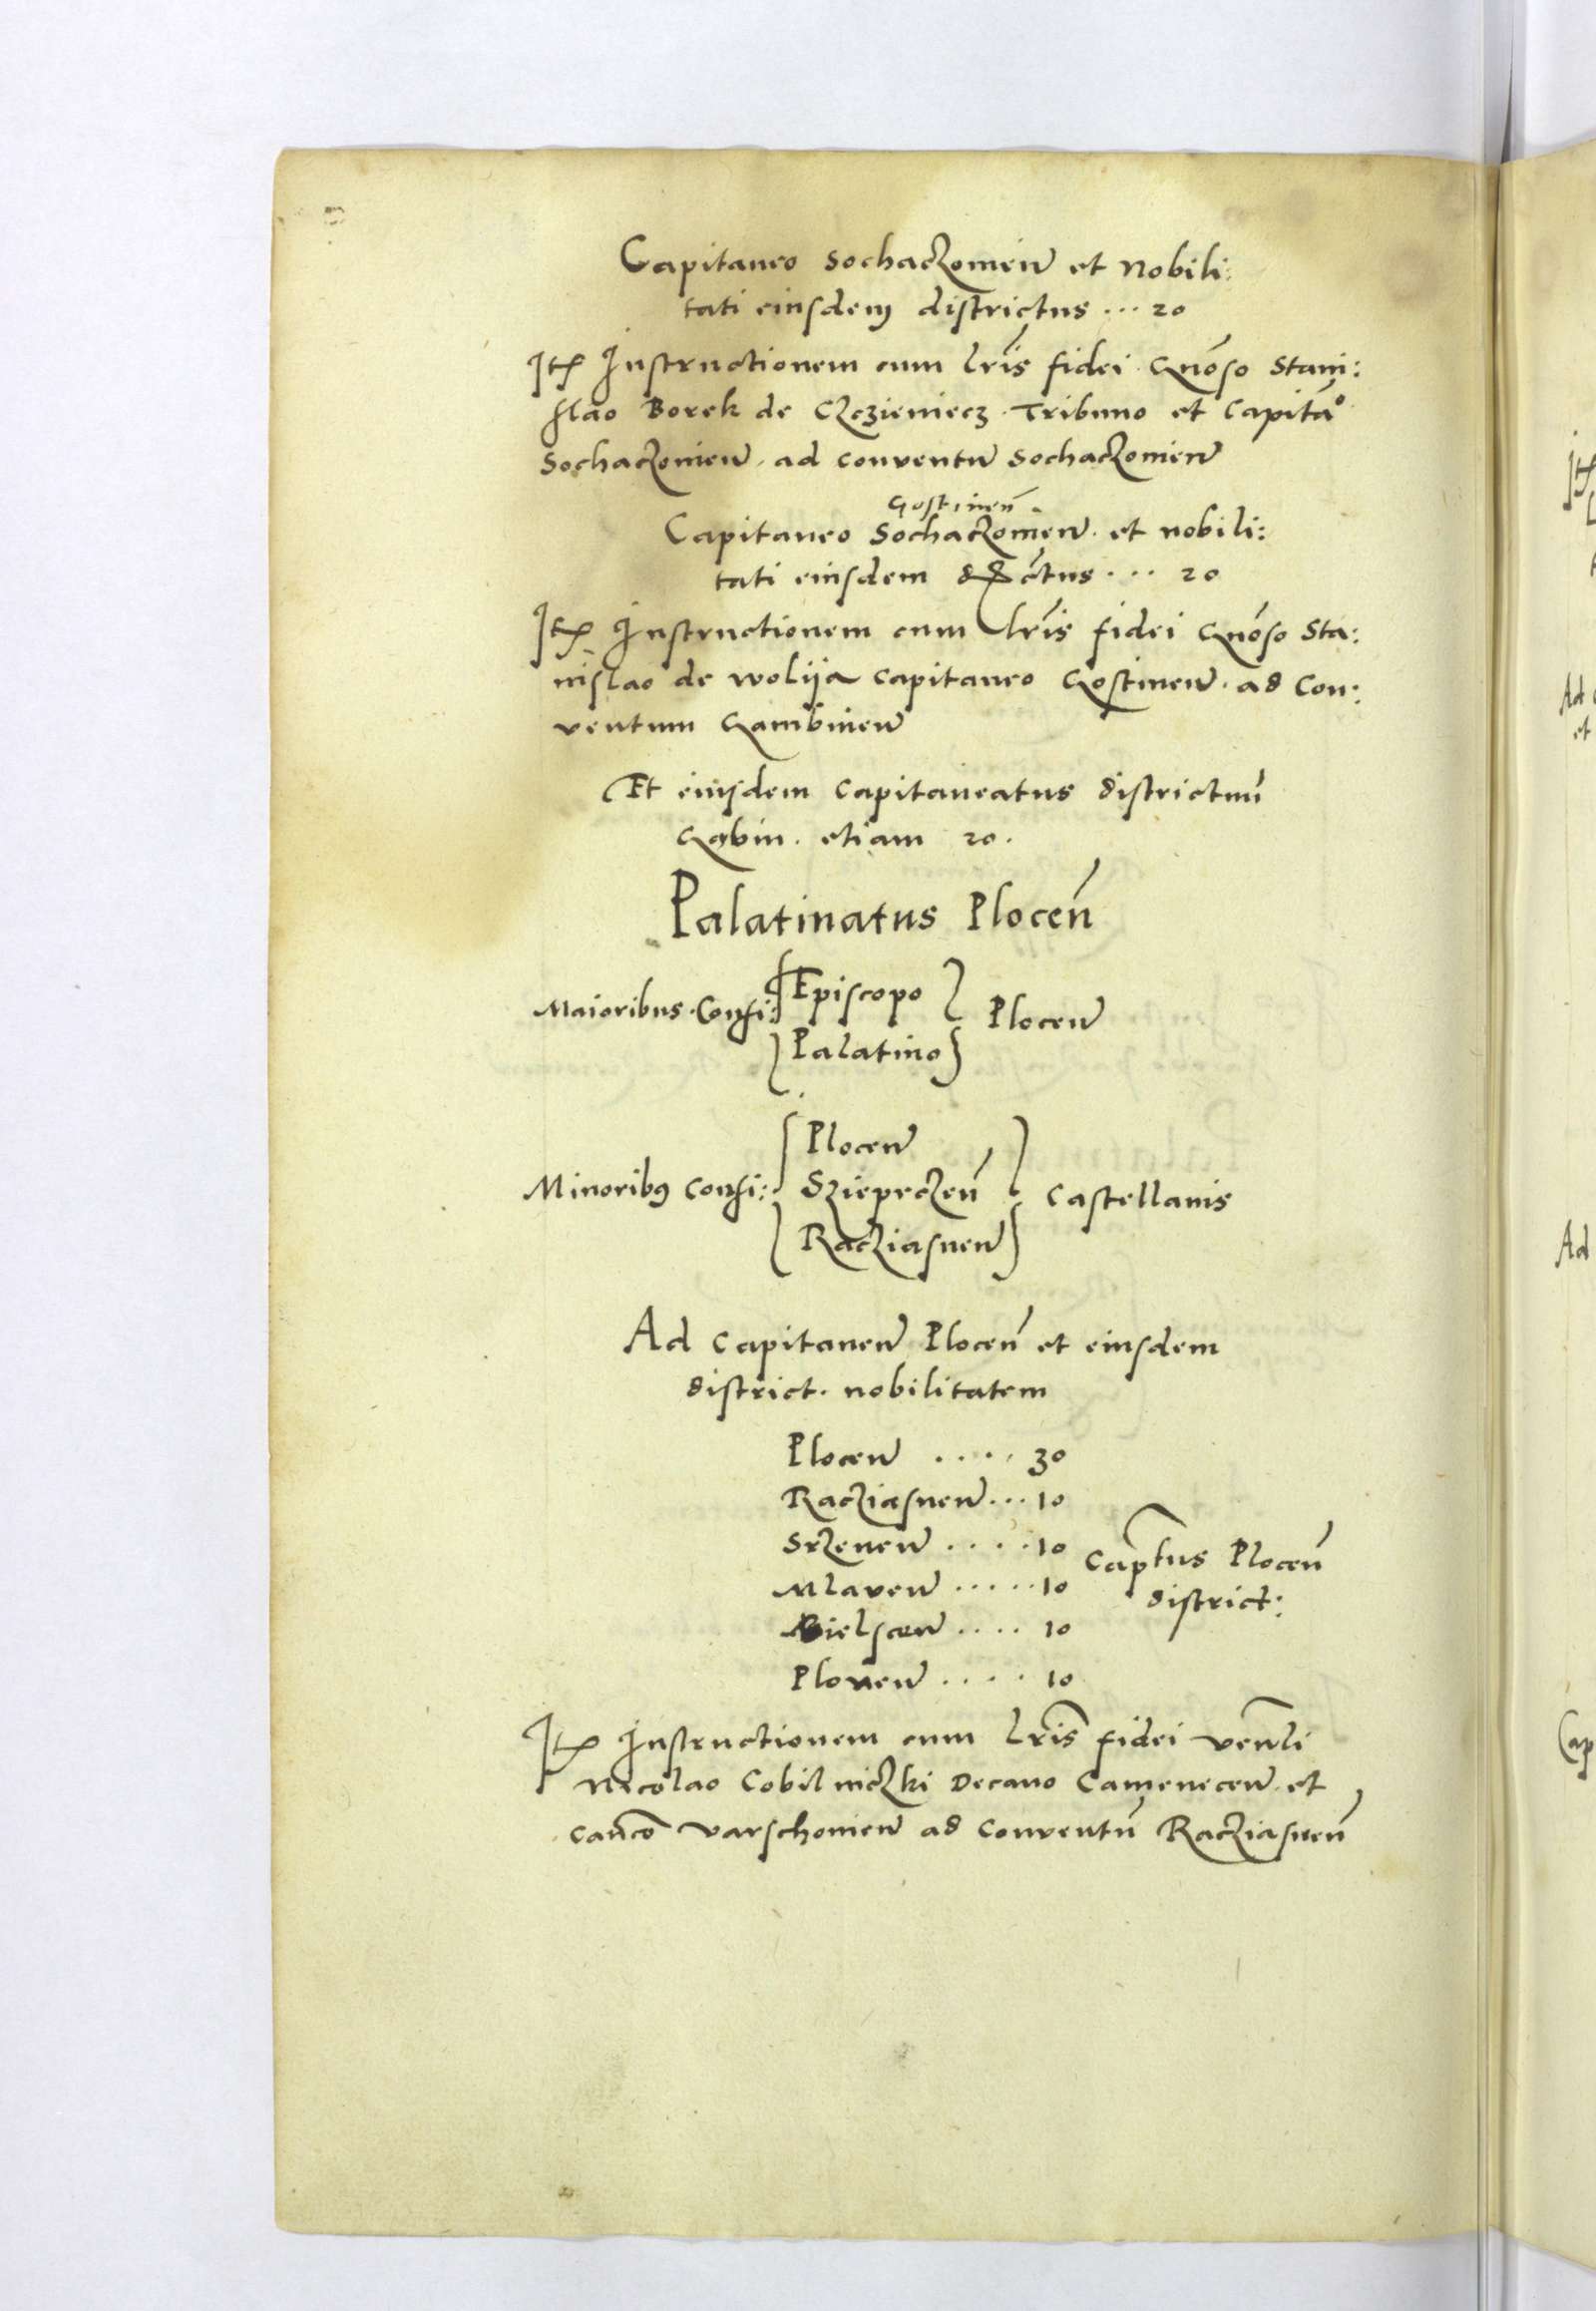 Capitaneo Sochaczovien et Nobili:
tati eiusdem districtus ... 20
Itē Instructionem cum lrīs fidei Gnōso Stani:
slao Borek de Czczieniecz Tribuno et Capitā°
Sochaczovien, ad conventū Sochaczovien
Gostinen̄
Capitaneo Sochaczovien. et nobili:
tati eiusdem districtus ... 20
Itē Instructionem cum lrīs fidei Gnōso Sta:
nislao de Wolija Capitaneo Gostinen. ad Con:
ventum Gambinen
Et eiusdem Capitaneatus districtum̄
Gąbin. etiam 20.
Palatinatus Plocen̄
Maioribus Consi: Episcopo Plocen
Palatino
Plocen
Minoribꝯ Consi: Szieprczen̄ Castellanis
Racziasnen
Ad Capitaneū Plocen̄ et eiusdem
district. nobilitatem
Plocen ..... 30
Racziasnen ... 10
Srzenen ..... 10 Cap̄tus Plocen̄
Mlaven ..... 10 district:
Bielscen .... 10
Plonen ..... 10
Itē Instructionem cum lrīs fidei Ven̄li
Nicolao Cobilniczki Decano Camenecen. et
Canc̄o Varschovien ad Conventū Racziasnen̄